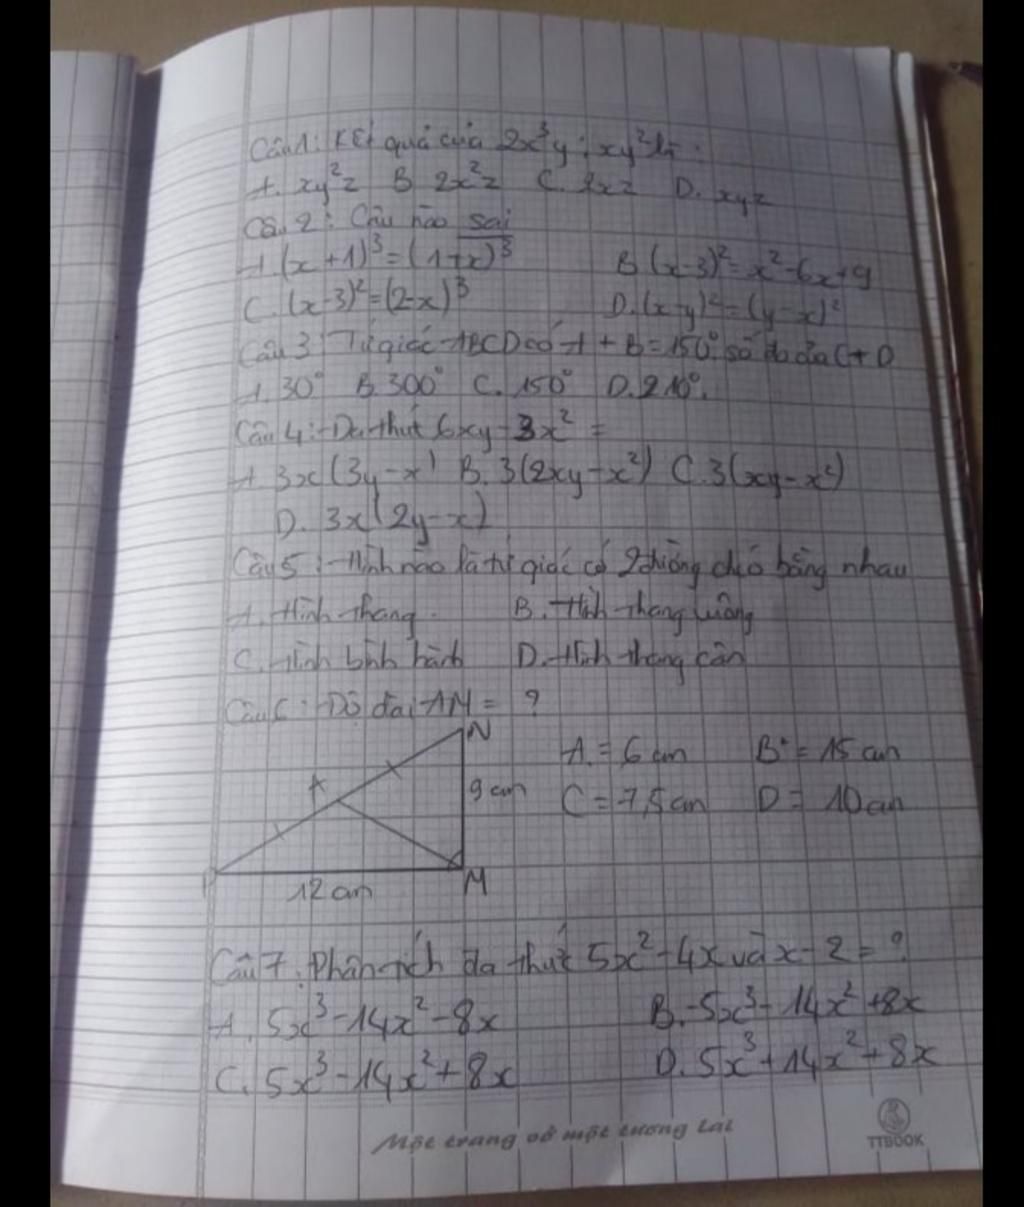 Câu 1: Kết quả của 2x³y : xy² là
A. xy²z B 2x²z C. 2xz D. xyz
Câu 2: Câu nào sai
A (x+1)³=(1+x)³ B (x-3)²=x²-6x+9
C. (x-3)²=(2-x)³ D.(x-y)²=(y-x)²
Câu 3 Tứ giác ABCD có A + B=150° số đo của C+D
A. 30° B. 300° C. 150° D. 210°.
Câu 4: Đa thức 6xy-3x² =
A. 3x(3y-x) B. 3(2xy-x²) C. 3(xy-x²)
D. 3x(2y-x)
Câu 5: Hình nào là tứ giác có 2 đường chéo bằng nhau
A. Hình thang. B. Hình thang vuông
C. Hình bình hành D. Hình thang cân
Câu 6: Độ dài AM = ?
N
A. = 6 cm B = 15 cm
9 cm
C = 7,5 cm D = 10 cm
P
M
12 cm
Câu 7. Phân tích đa thức 5x²-4x và x-2=?
A. 5x³-14x²-8x B. -5x³-14x²+8x
C. 5x³-14x²+8x D. 5x³+14x²+8x
Một trang vở một tương lai
TTBOOK